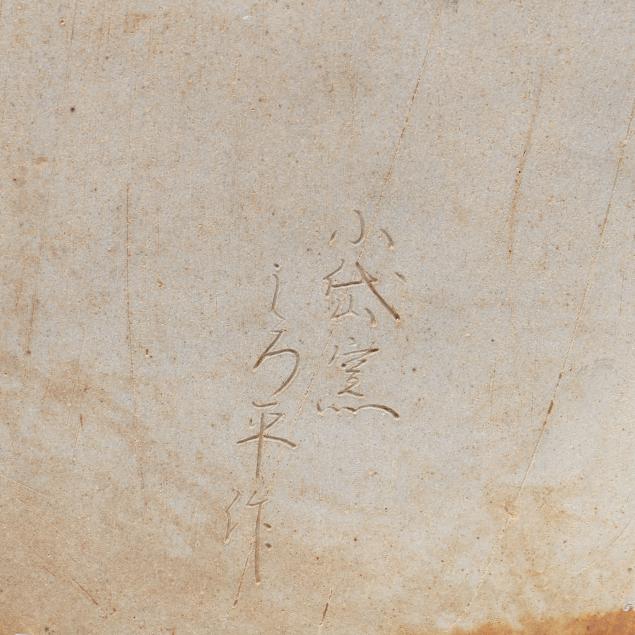 小岱窯
しろ平作